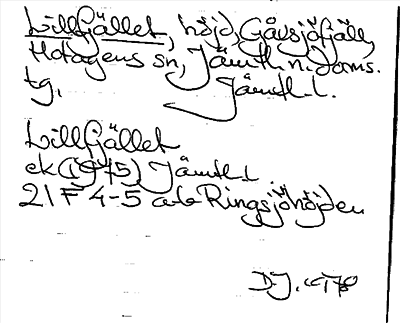 Lillfjället, höjd, Gåvsjöfjäll,
Hotagens sn, Jämtl. n. doms.
tg, Jämtl. l.
Lillfjället
ek (1975) Jämtl. l
21 F 4-5 a-b Ringsjöhöjden
D.J. 1970